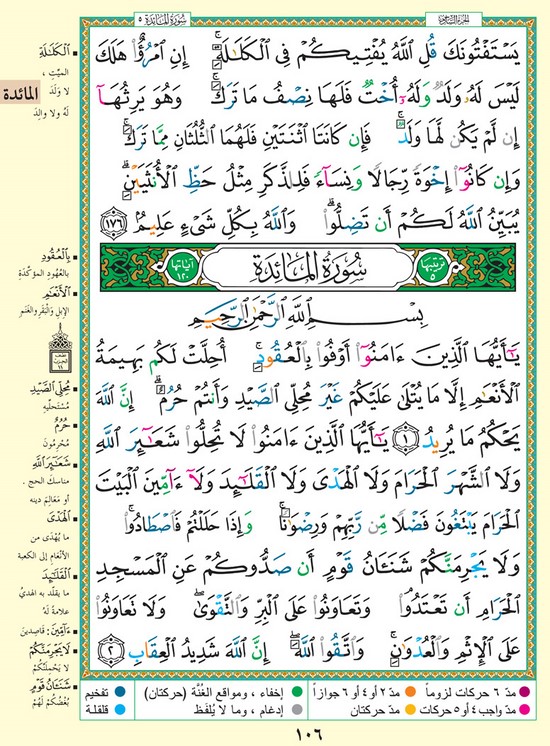 سُورَةُ المَائِدَة ٥
الجزء السادس
يَسۡتَفۡتُونَكَ قُلِ ٱللَّهُ يُفۡتِيكُمۡ فِى ٱلۡكَلَٰلَةِۚ إِنِ ٱمۡرُؤٌا۟ هَلَكَ
لَيۡسَ لَهُۥ وَلَدٌ وَلَهُۥٓ أُخۡتٌ فَلَهَا نِصۡفُ مَا تَرَكَۚ وَهُوَ يَرِثُهَآ
إِن لَّمۡ يَكُن لَّهَا وَلَدٌۚ فَإِن كَانَتَا ٱثۡنَتَيۡنِ فَلَهُمَا ٱلثُّلُثَانِ مِمَّا تَرَكَۚ
وَإِن كَانُوٓا۟ إِخۡوَةً رِّجَالًا وَنِسَآءً فَلِلذَّكَرِ مِثۡلُ حَظِّ ٱلۡأُنثَيَيۡنِۗ
يُبَيِّنُ ٱللَّهُ لَكُمۡ أَن تَضِلُّوا۟ۗ وَٱللَّهُ بِكُلِّ شَىۡءٍ عَلِيمٌۢ ١٧٦
ترتيبها ٥
سُورَةُ المَائِدَة
آياتها ١٢٠
بِسۡمِ ٱللَّهِ ٱلرَّحۡمَٰنِ ٱلرَّحِيمِ
يَٰٓأَيُّهَا ٱلَّذِينَ ءَامَنُوٓا۟ أَوۡفُوا۟ بِٱلۡعُقُودِۚ أُحِلَّتۡ لَكُم بَهِيمَةُ
ٱلۡأَنۡعَٰمِ إِلَّا مَا يُتۡلَىٰ عَلَيۡكُمۡ غَيۡرَ مُحِلِّى ٱلصَّيۡدِ وَأَنتُمۡ حُرُمٌۗ إِنَّ ٱللَّهَ
يَحۡكُمُ مَا يُرِيدُ ١ يَٰٓأَيُّهَا ٱلَّذِينَ ءَامَنُوا۟ لَا تُحِلُّوا۟ شَعَٰٓئِرَ ٱللَّهِ
وَلَا ٱلشَّهۡرَ ٱلۡحَرَامَ وَلَا ٱلۡهَدۡىَ وَلَا ٱلۡقَلَٰٓئِدَ وَلَآ ءَآمِّينَ ٱلۡبَيۡتَ
ٱلۡحَرَامَ يَبۡتَغُونَ فَضۡلًا مِّن رَّبِّهِمۡ وَرِضۡوَٰنًاۚ وَإِذَا حَلَلۡتُمۡ فَٱصۡطَادُوا۟ۚ
وَلَا يَجۡرِمَنَّكُمۡ شَنَـَٔانُ قَوۡمٍ أَن صَدُّوكُمۡ عَنِ ٱلۡمَسۡجِدِ
ٱلۡحَرَامِ أَن تَعۡتَدُوا۟ۘ وَتَعَاوَنُوا۟ عَلَى ٱلۡبِرِّ وَٱلتَّقۡوَىٰۖ وَلَا تَعَاوَنُوا۟
عَلَى ٱلۡإِثۡمِ وَٱلۡعُدۡوَٰنِۚ وَٱتَّقُوا۟ ٱللَّهَۖ إِنَّ ٱللَّهَ شَدِيدُ ٱلۡعِقَابِ ٢
المائدة
ٱلۡكَلَٰلَةِ
الميّت ،
لا وَلَدَ
لَهُ ولا والد
بِٱلۡعُقُودِ
بالعُهُودِ المؤكّدَةِ
ٱلۡأَنۡعَٰمِ
الإبل والبَقَر والغَنَم
مُحِلِّى ٱلصَّيۡدِ
مُسْتَحلّيه
حُرُمٌ
مُحْرِمُونَ
شَعَٰٓئِرَ ٱللَّهِ
مناسك الحج
أو مَعَالِمَ دينه
ٱلۡهَدۡىَ
ما يُهْدَى من
الأنْعَام إلى الكعبة
ٱلۡقَلَٰٓئِدَ
ما يقلَّد به الهديُ
علامةً لَهُ
ءَآمِّينَ : قاصدين
لَا يَجۡرِمَنَّكُمۡ
لا يَحْمِلَنَّكُمْ
شَنَـَٔانُ قَوۡمٍ
بُغْضُكُمْ لَهُمْ
مدّ ٦ حركات لزوماً مدّ ٢ أو ٤ أو ٦ جوازاً إخفاء، ومواقع الغُنَّة (حركتان) تفخيم
مدّ واجب ٤ أو ٥ حركات مدّ حركتان إدغام ، وما لا يُلفَظ قلقلة
١٠٦